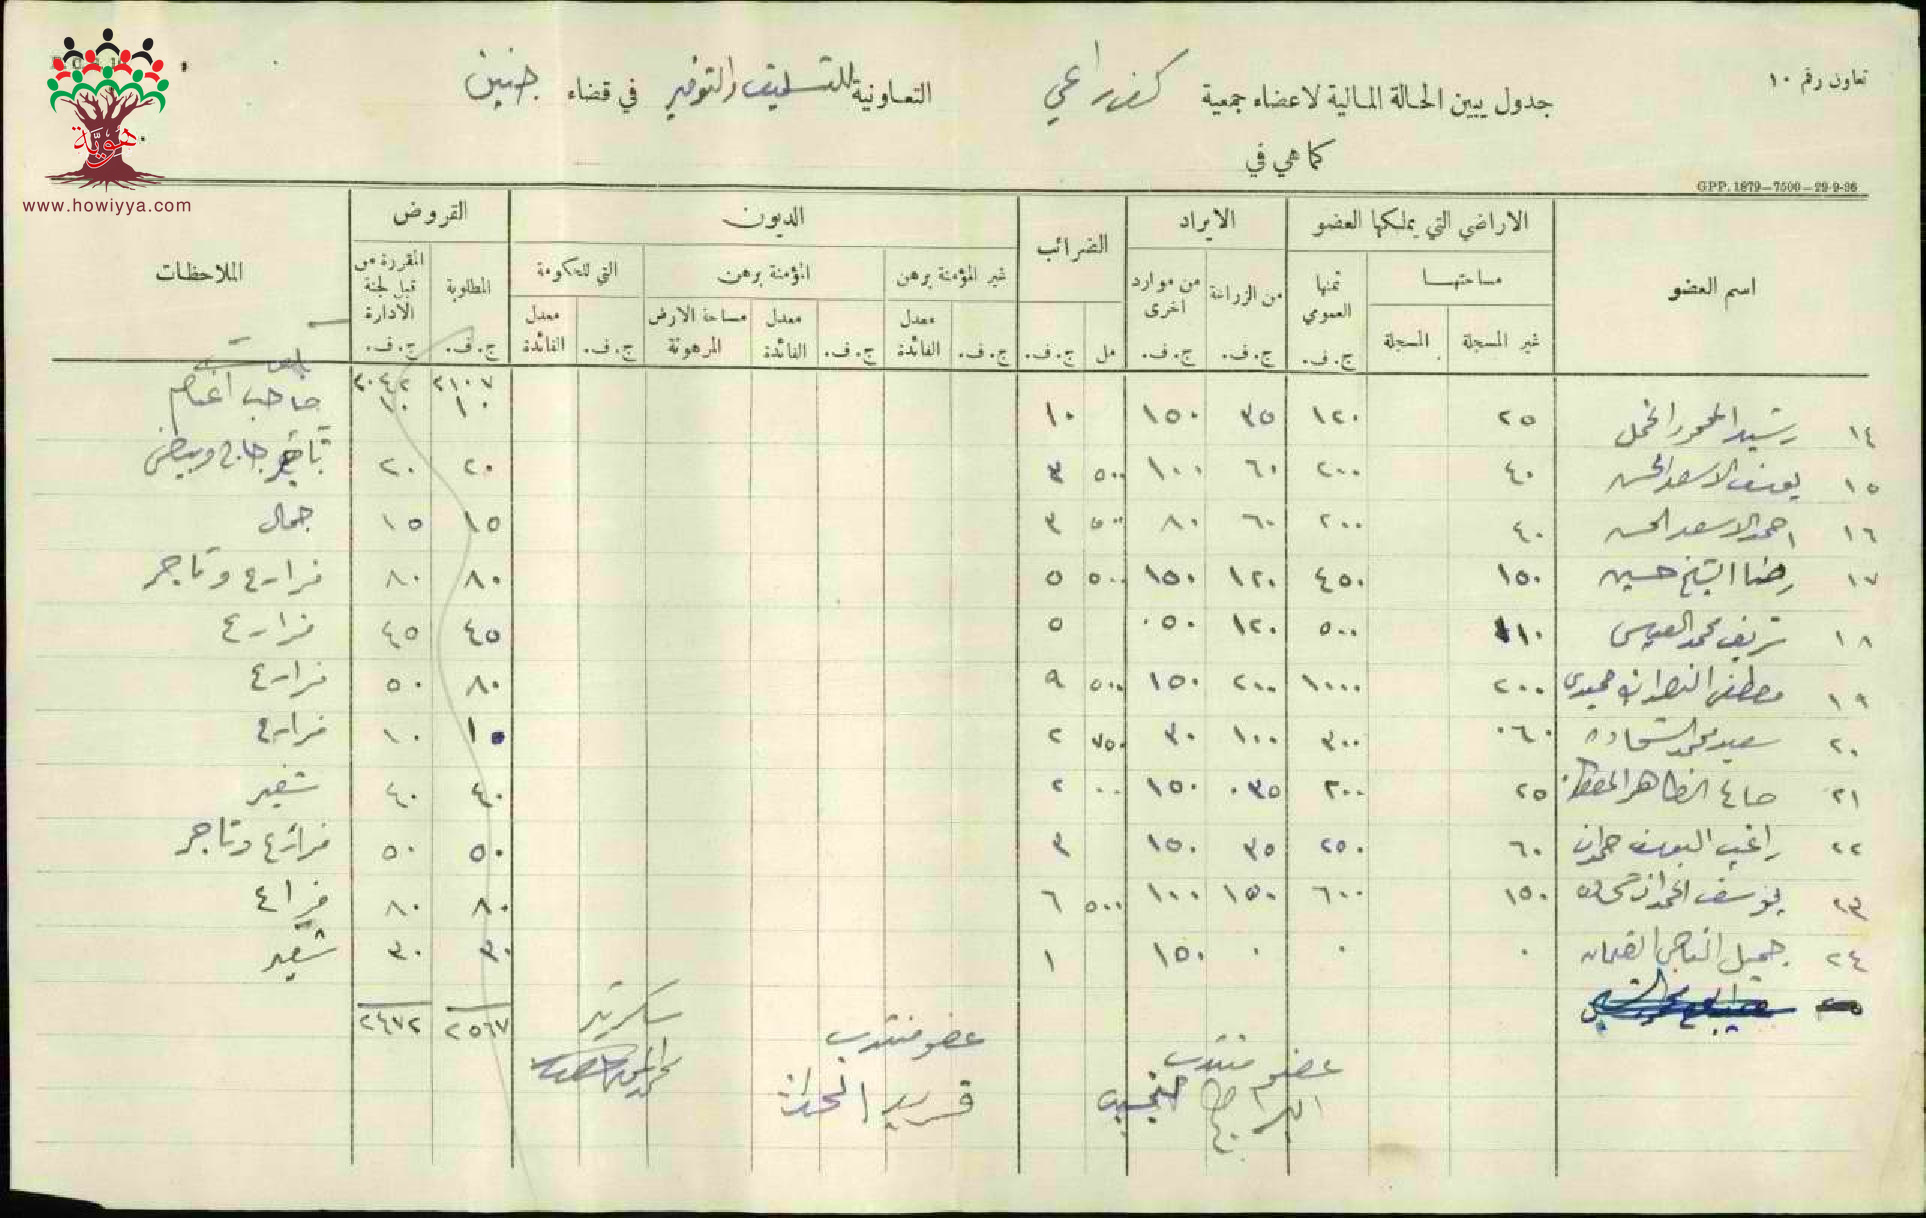 تعاون رقم ١٠
جدول يبين الحالة المالية لاعضاء جمعية كفر راعي التعاونية للتسليف والتوفير في قضاء جنين
كما هي في
GPP. 1879—7500—29-9-36
هوية
www.howiyya.com
اسم العضو | الاراضي التي يملكها العضو | الايراد | الضرائب | الديون | القروض | الملاحظات
مساحتها | ثمنها العمومي | من الزراعة | من موارد اخرى | غير المؤمنة برهن | المؤمنة برهن | التي للحكومة | المطلوبة | المقررة من قبل لجنة الادارة
غير المسجلة | المسجلة | ج.ف. | ج.ف. | ج.ف. | مل | ج.ف. | ج.ف. | معدل الفائدة | ج.ف. | معدل الفائدة | مساحة الارض المرهونة | ج.ف. | معدل الفائدة | ج.ف. | ج.ف.
٢١٠٧ | ٢٠٤٢
١٤ | رشيد المحمود | ٢٥ | ١٢٠ | ٣٥ | ١٥٠ | ١٠ | ١٠ | ١٠ | صاحب اغنام
١٥ | يوسف الاسعد الحسن | ٤٠ | ٢٠٠ | ٦٠ | ١٠٠ | ٥٠٠ | ٣ | ٢٠ | ٢٠ | تاجر جاج وبيض
١٦ | احمد الاسعد الحسن | ٤٠ | ٢٠٠ | ٦٠ | ٨٠ | ٥٠٠ | ٣ | ١٥ | ١٥ | جمال
١٧ | رضا الشيخ حسين | ١٥٠ | ٤٥٠ | ١٢٠ | ١٥٠ | ٥٠٠ | ٥ | ٨٠ | ٨٠ | مزارع وتاجر
١٨ | شريف محمد العيسى | ١١٠ | ٥٠٠ | ١٢٠ | ٠٥٠ | ٥ | ٤٥ | ٤٥ | مزارع
١٩ | مصطفى | ٢٠٠ | ١٠٠٠ | ٢٠٠ | ١٥٠ | ٥٠٠ | ٩ | ٨٠ | ٥٠ | مزارع
٢٠ | سعيد محمد الشحادة | ٠٦٠ | ٣٠٠ | ١٠٠ | ٣٠ | ٧٥٠ | ٢ | ١٠ | ١٠ | مزارع
٢١ | الظاهر | ٢٥ | ٢٠٠ | ٠٣٥ | ١٥٠ | ٠٠ | ٢ | ٤٠ | ٤٠ | شغير
٢٢ | راغب اليوسف حمدان | ٦٠ | ٢٥٠ | ٣٥ | ١٥٠ | ٣ | ٥٠ | ٥٠ | مزارع وتاجر
٢٣ | يوسف | ١٥٠ | ٦٠٠ | ١٥٠ | ١٠٠ | ٥٠٠ | ٦ | ٨٠ | ٨٠ | مزارع
٢٤ | جميل الناجي | ٠ | ٠ | ٠ | ١٥٠ | ١ | ٣٠ | ٣٠ | شغير
٢٥٦٧ | ٢٤٧٢
عضو منتدب | عضو منتدب | سكرتير
فريد